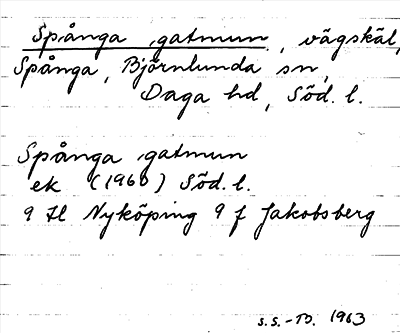 Spånga gatmun, vägskäl,
Spånga, Björnlunda sn,
Daga hd, Söd. l.
Spånga gatmun
ek (1960) Söd. l.
9 H Nyköping 9 f Jakobsberg
s.s.-B. 1963